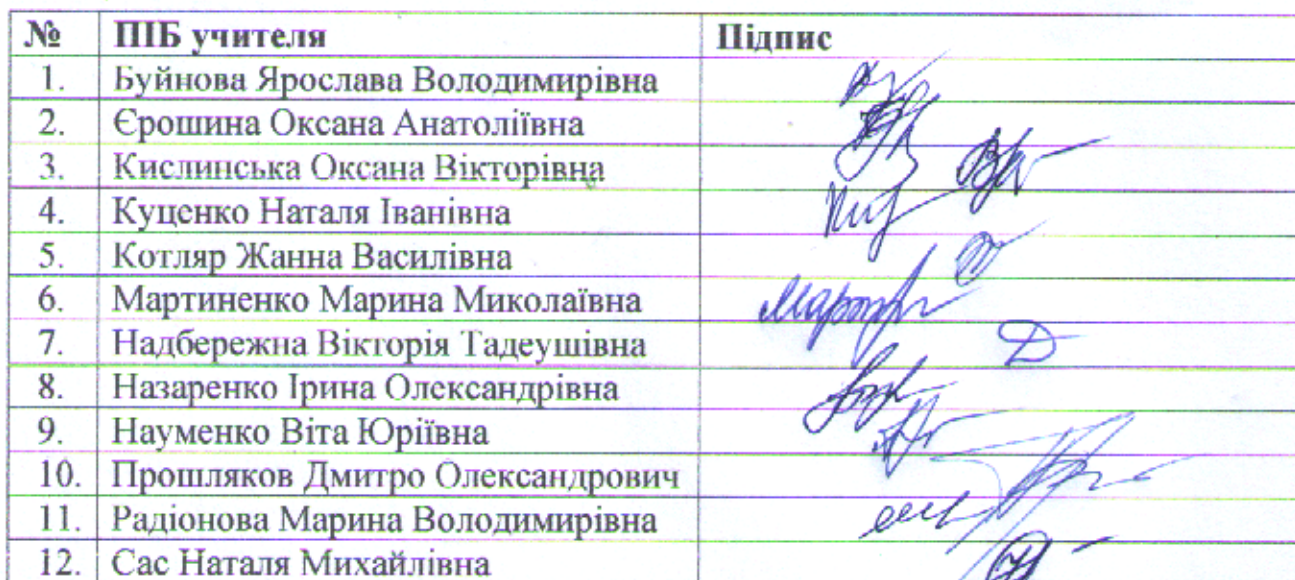 № ПІБ учителя Підпис
1. Буйнова Ярослава Володимирівна
2. Єрошина Оксана Анатоліївна
3. Кислинська Оксана Вікторівна
4. Куценко Наталя Іванівна
5. Котляр Жанна Василівна
6. Мартиненко Марина Миколаївна
7. Надбережна Вікторія Тадеушівна
8. Назаренко Ірина Олександрівна
9. Науменко Віта Юріївна
10. Прошляков Дмитро Олександрович
11. Радіонова Марина Володимирівна
12. Сас Наталя Михайлівна